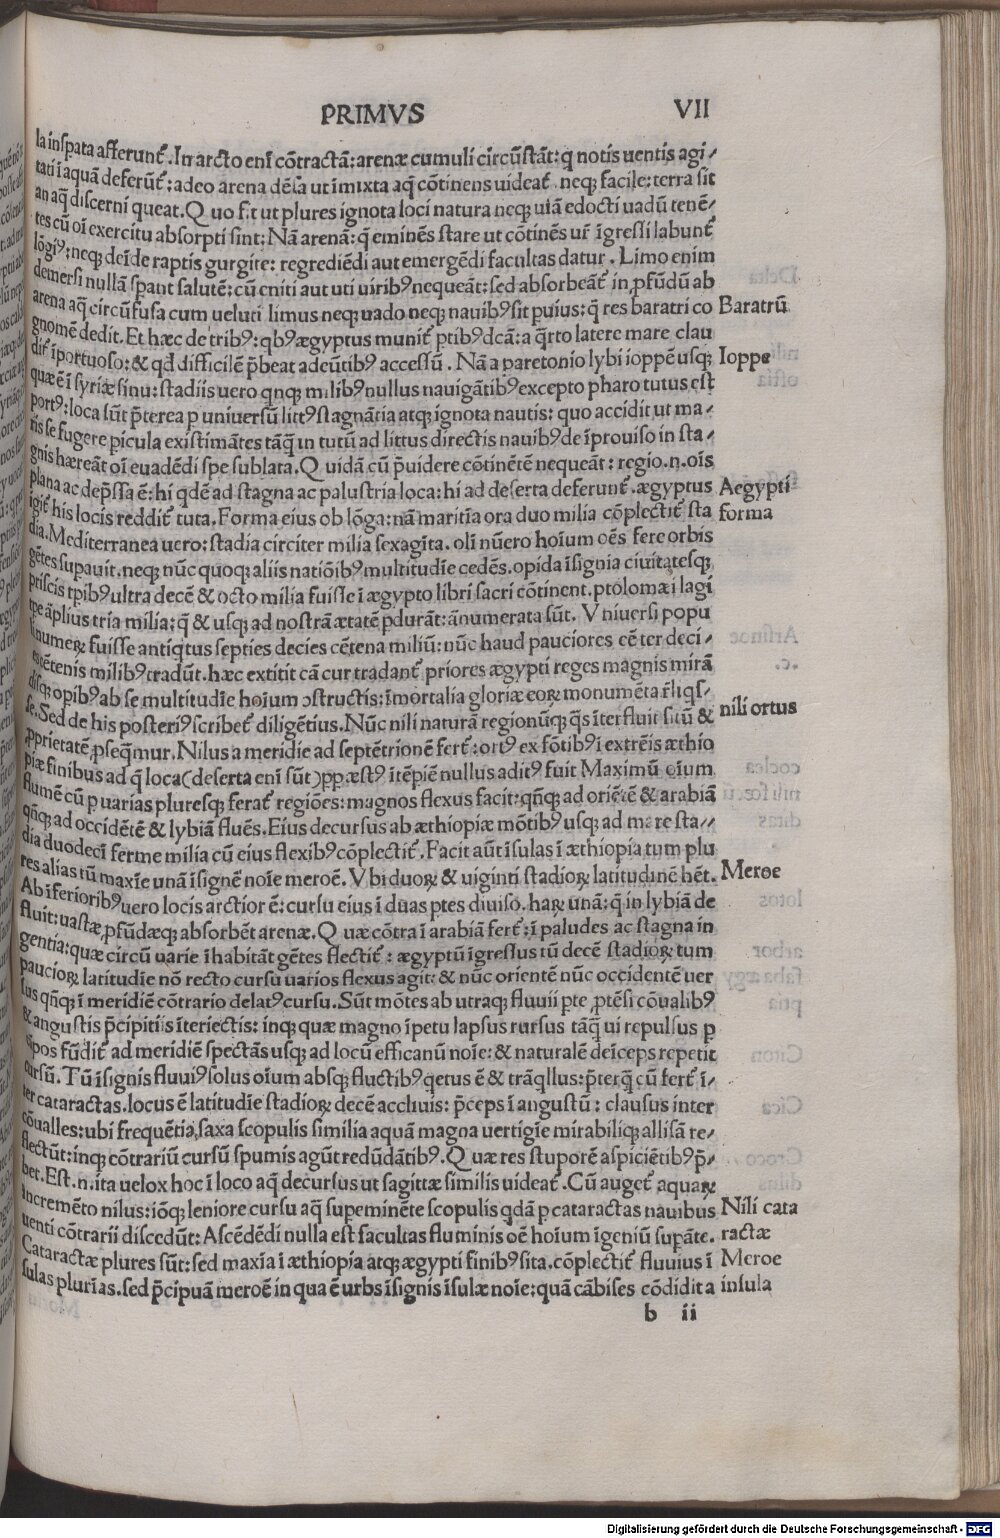 PRIMVS VII
la inſpata afferunt᷑. In arcto enī cōtractā: arenæ cumuli circūſtāt: q̄ notis uentis agi⸗
tati ī aquā deferūt᷑: adeo arena dēſa ut īmixta aq̄ cōtinens uideat᷑. neqꝫ facile: terra ſit
an aq̄ diſcerni queat. Quo f.t ut plures ignota loci natura neqꝫ uiā edocti uadū tenē⸗
tes cū oī exercitu abſorpti ſint: Nā arenā: q̄ eminēs ſtare ut cōtinēs ur̄ īgreſſi labunt᷑
lōgiꝰ: neqꝫ deīde raptis gurgite: regrediēdi aut emergēdi facultas datur. Limo enim
demerſi nullā ſpant ſalutē: cū eniti aut uti uiribꝰ nequeāt: ſed abſorbeāt᷑ in ꝓfūdū ab
arena aq̄ circūfuſa cum ueluti limus neqꝫ uado neqꝫ nauibꝰ ſit puius: q̄ res baratri co Baratrū
gnomē dedit. Et hæc de tribꝰ: qbꝰ ægyptus munit᷑ ptibꝰ dcā: a q̄rto latere mare clau
dit᷑ īportuoſo: & qd̄ difficilē p̄beat adeūtibꝰ acceſſū. Nā a paretonio lybi ioppē uſqꝫ Ioppe
quæ ē ī ſyriæ ſinu: ſtadiis uero qnqꝫ m̄.libꝰ nullus nauigātibꝰ excepto pharo tutus eſt
portꝰ: loca ſūt p̄terea p uniuerſū littꝰ ſtagnātia atqꝫ ignota nautis: quo accidit ut ma⸗
ris ſe fugere picula exiſtimātes tāq̄ in tutū ad littus directis nauibꝰ de īprouiſo in ſta⸗
gnis hæreāt oī euadēdi ſpe ſublata. Quidā cū p̄uidere cōtinētē nequeāt: regio.n.oīs
plana ac dep̄ſſa ē: hi qdē ad ſtagna ac paluſtria loca: hi ad deſerta deferunt᷑. ægyptus Aegypti
igit᷑ his locis reddit᷑ tuta. Forma eius ob lōga: nā maritīa ora duo milia cōplectit᷑ ſta forma
dia. Mediterranea uero: ſtadia circiter milia ſexagīta. olī nūero hoīum oēs fere orbis
gētes ſupauit. neqꝫ nūc quoqꝫ aliis natiōibꝰ multitudīe cedēs. opida īſignia ciuitatesqꝫ
priſcis tpibꝰ ultra decē & octo milia fuiſſe ī ægypto libri ſacri cōtinent. ptolomæi lagi
tpe āplius tria milia: q̄ & uſqꝫ ad noſtrā ætatē pdurāt: ānumerata ſūt. Vniuerſi popu
li numeꝝ fuiſſe antiqtus ſepties decies cētena miliū: nūc haud pauciores eē ter deci⸗
es cētenis milibꝰ tradūt. hæc extitit cā cur tradant᷑ priores ægypti reges magnis mirā
diſqꝫ opibꝰ ab ſe multitudīe hoīum ↄſtructis: īmortalia gloriæ eoꝝ monumēta r̄liqſ⸗
ſe. Sed de his poſteriꝰ ſcribet᷑ diligētius. Nūc nili naturā regionūqꝫ q̄s īter fluit ſitū & nili ortus
ꝓprietatē ꝓſeq̄mur. Nilus a meridie ad ſeptētrionē fert᷑: ortꝰ ex fōtibꝰ ī extrēis æthio
piæ finibus ad q̄ loca (deſerta enī ſūt) ꝓp æſtꝰ ītēpiē nullus aditꝰ fuit Maximū oīum
flumē cū p uarias plureſqꝫ ferat᷑ regiōes: magnos flexus facit: qn̄qꝫ ad oriētē & arabiā
qn̄qꝫ ad occidētē & lybiā fluēs. Eius decurſus ab æthiopiæ mōtibꝰ uſqꝫ ad mare ſta⸗
dia duodecī ferme milia cū eius flexibꝰ cōplectit᷑. Facit aūt īſulas ī æthiopia tum plu
res alias tū maxīe unā īſignē noīe meroē. Vbi duoꝝ & uiginti ſtadioꝝ latitudinē hēt. Meroe
Ab īferioribꝰ uero locis arctior ē: curſu eius ī duas ptes diuiſo. haꝝ unā: q̄ in lybiā de
fluit: uaſtæ, ꝓfūdæqꝫ abſorbēt arenæ. Quæ cōtra ī arabiā fert᷑: ī paludes ac ſtagna in
gentia: quæ circū uarie īhabitāt gētes flectit᷑: ægyptū īgreſſus tū decē ſtadioꝝ tum
paucioꝝ latitudīe nō recto curſu uarios flexus agit: & nūc orientē nūc occidentē uer
ſus qn̄qꝫ ī meridiē cōtrario delatꝰ curſu. Sūt mōtes ab utraqꝫ fluuii pte, ꝓtēſi cōualibꝰ
& anguſtis p̄cipitiis īteriectis: inqꝫ quæ magno īpetu lapſus rurſus tāq̄ ui repulſus p
cāpos fūdit᷑ ad meridiē ſpectās uſqꝫ ad locū efficanū noīe: & naturalē deīceps repetit
curſū. Tū īſignis fluuiꝰ ſolus oīum abſqꝫ fluctibꝰ qetus ē & trāqllus: p̄terq̄ cū fert᷑ ī⸗
ter cataractas. locus ē latitudīe ſtadioꝝ decē accliuis: p̄ceps ī anguſtū: clauſus inter
cōualles: ubi frequētia, ſaxa ſcopulis ſimilia aquā magna uertigīe mirabiliqꝫ alliſā re⸗
flectūt: inqꝫ cōtrariū curſū ſpumis agūt redūdātibꝰ. Quæ res ſtuporē aſpiciētibꝰ p̄⸗
bet. Eſt.n.ita uelox hoc ī loco aq̄ decurſus ut ſagittæ ſimilis uideat᷑. Cū auget᷑ aquaꝝ
incremēto nilus: iōqꝫ leniore curſu aq̄ ſupeminēte ſcopulis qdā p cataractas nauibus Nili cata
uenti cōtrarii diſcedūt: Aſcēdēdi nulla eſt facultas fluminis oē hoīum īgeniū ſupāte. ractæ
Cataractæ plures ſūt: ſed maxīa ī æthiopia atqꝫ ægypti finibꝰ ſita. cōplectit᷑ fluuius ī Meroe
ſulas plurīas. ſed p̄cipuā meroē in qua ē urbs īſignis īſulæ noīe: quā cābiſes cōdidit a inſula
b ii
Digitalisierung gefördert durch die Deutsche Forschungsgemeinschaft - DFG